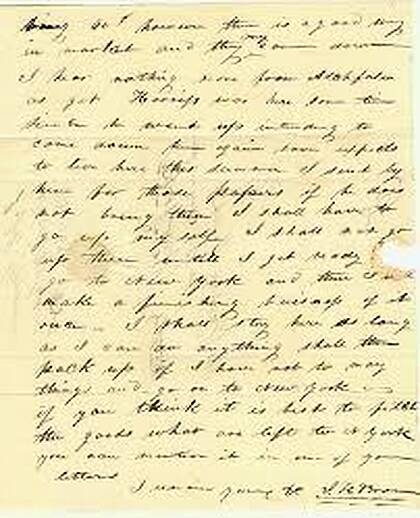 however there is a good many
in market and they come down
I hear nothing more from
as yet Harris was here some time
since he went up intending to
come down again soon expects
to live here this summer I sent by
him for those papers if he does
not bring them I shall have to
go up my self I shall not go
up there untill I get ready to
go to New York and then I
make a finishing business of it
I shall stay here as long
as I can do any thing shall then
pack up if I have not to many
things and go on to New York
if you think it is best to
the goods what are left to N York
you can mention it in one of your
letters
I remain yours &c